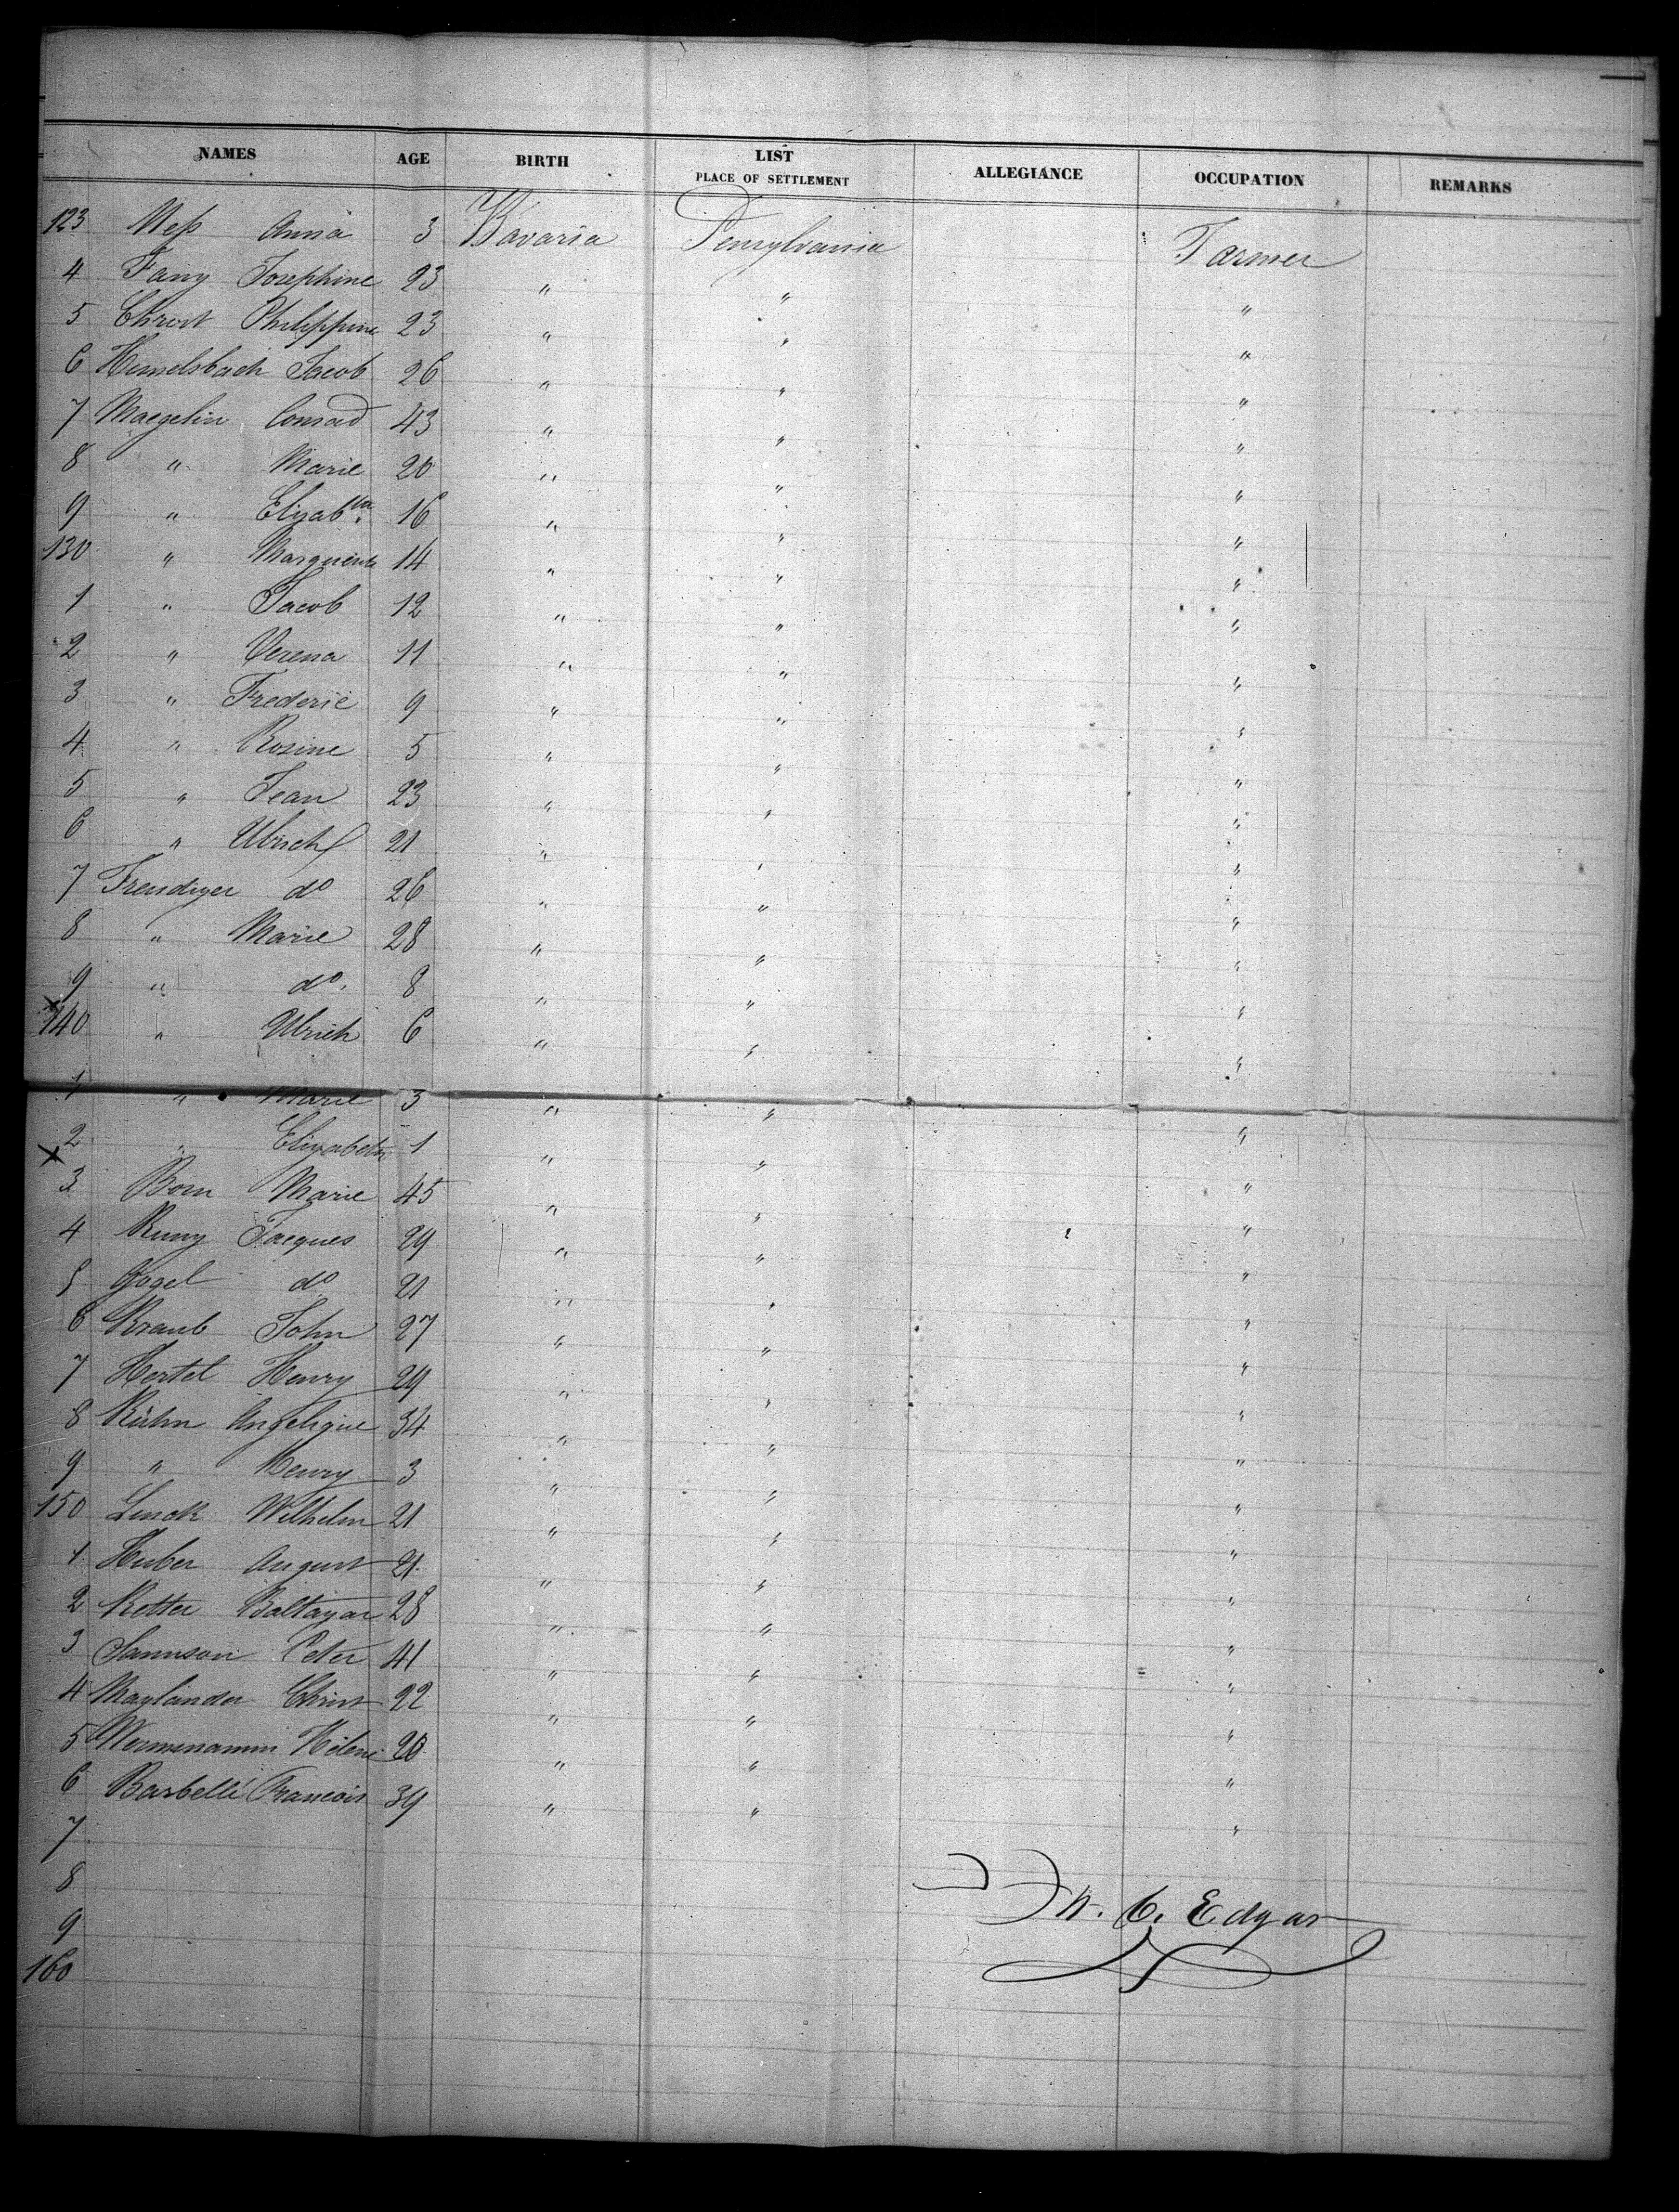 NAMES AGE BIRTH LIST PLACE OF SETTLEMENT ALLEGIANCE OCCUPATION REMARKS
123 Meß Anna 3 Bavaria Pensylvania Farmer
4 Fany Josephine 23 " " "
5 Christ Philippine 23 " " "
6 Hemelsbach Jacob 26 " " "
7 Maegelin Conrad 43 " " "
8 " Marie 20 " " "
9 " Elizabth 16 " " "
130 " Marguerite 14 " " "
1 " Jacob 12 " " "
2 " Verena 11 " " "
3 " Frederic 9 " " "
4 " Rosine 5 " " "
5 " Jean 23 " " "
6 " Ulrich 21 " " "
7 Freudiger do 26 " " "
8 " Marie 28 " " "
9 " do. 8 " " "
140 " Ulrich 6 " " "
1 " Marie 3 " " "
2 " Elizabeth 1 " " "
3 Born Marie 45 " " "
4 Kuny Jacques 29 " " "
5 Gogel do 21 " " "
6 Kraub John 27 " " "
7 Hertel Henry 29 " " "
8 Kühn Angelique 34 " " "
9 " Henry 3 " " "
150 Linck Wilhelm 21 " " "
1 Huber August 21 " " "
2 Ketter Baltazar 28 " " "
3 Samson Peter 41 " " "
4 Maylander Christ 22 " " "
5 Hélène 20 " " "
6 Barbelli Francois 39 " " "
7
8
9
160
C. Edgar